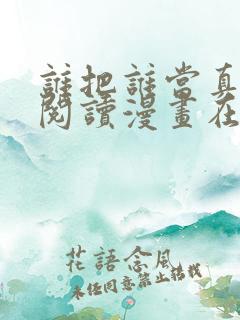 誰把誰當真
閱讀漫畫在
花語念風
未經同意禁止轉載